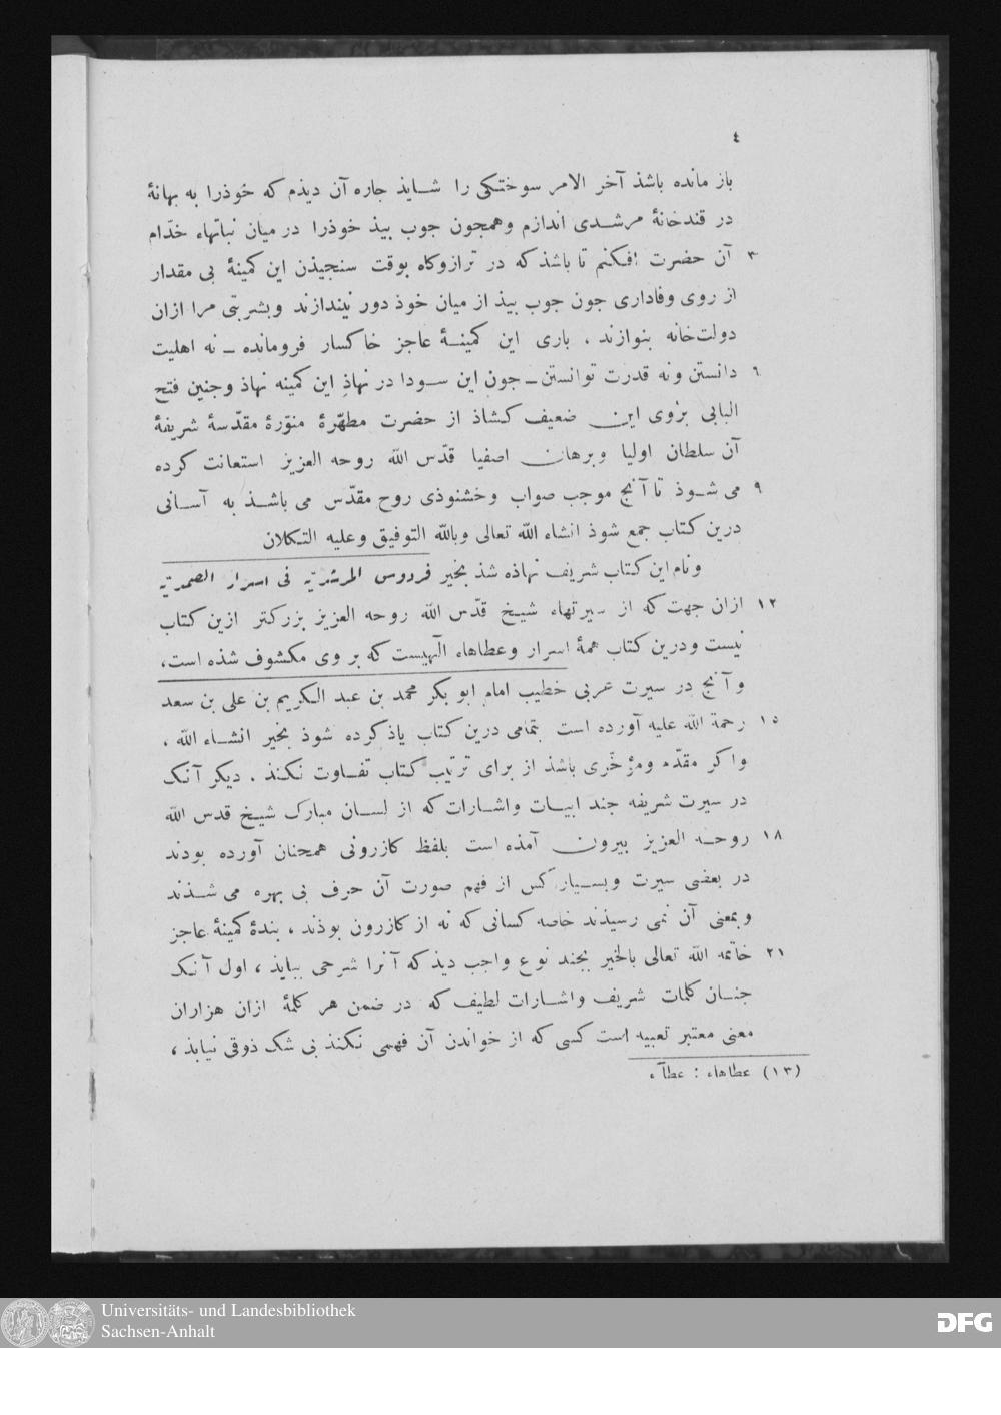 ٤
باز مانده باشذ آخر الامر سوختگی را شایذ جاره آن دیذم که خوذرا به بهانهٔ
در قندخانهٔ مرشدی اندازم وهمجون جوب بیذ خوذرا در میان نباتهاء خدّام
٣ آن حضرت افکنم تا باشذ که در ترازوکاه بوقت سنجیذن این کمینهٔ بی مقدار
از روی وفاداری جون جوب بیذ از میان خوذ دور نیندازند وبشربتی مرا ازان
دولت‌خانه بنوازند ، باری این کمینهٔ عاجز خاکسار فرومانده – نه اهلیت
٦ دانستن ونه قدرت توانستن – جون این سودا در نهاذِ این کمینه نهاذ وجنین فتح
البابی برٰوی این ضعیف کشاذ از حضرت مطهّرهٔ منوّرهٔ مقدّسهٔ شریفهٔ
آن سلطان اولیا وبرهان اصفیا قدّس الله روحه العزیز استعانت کرده
٩ می شوذ تا آنج موجب صواب وخشنوذی روح مقدّس می باشذ به آسانی
درین کتاب جمع شوذ انشاء الله تعالی وبالله التوفیق وعلیه التکلان
ونام این کتاب شریف نهاذه شذ بخیر فردوس المرشدیّه فی اسرار الصمدیّه
١٢ ازان جهت که از سیرتهاء شیخ قدّس الله روحه العزیز بزرکتر ازین کتاب
نیست ودرین کتاب همهٔ اسرار وعطاهاء الٓهیست که بر وی مکشوف شذه است،
وآنج در سیرت عربی خطیب امام ابو بکر محمد بن عبد الکریم بن علی بن سعد
١٥ رحمة الله علیه آورده است بتمامی درین کتاب یاذ کرده شوذ بخیر انشاء الله ،
واکر مقدّم ومؤخّری باشذ از برای ترتیب کتاب تفاوت نکند . دیکر آنک
در سیرت شریفه جند ابیات واشارات که از لسان مبارک شیخ قدس الله
١٨ روحه العزیز بیرون آمذه است بلفظ کازرونی همجنان آورده بودند
در بعضی سیرت وبسیار کس از فهم صورت آن حرف بی بهره می شذند
وبمعنی آن نمی رسیذند خاصه کسانی که نه از کازرون بوذند ، بندهٔ کمینهٔ عاجز
٢١ خاتمه الله تعالی بالخیر بجند نوع واجب دیذ که آنرا شرحی بیایذ ، اول آنک
جنان کلمات شریف واشارات لطیف که در ضمن هر کلمهٔ ازان هزاران
معنی معتبر تعبیه است کسی که از خواندن آن فهمی نکنذ بی شک ذوقی نیابذ ،
(١٣) عطاهاء : عطاآء
Universitäts- und Landesbibliothek
Sachsen-Anhalt
DFG